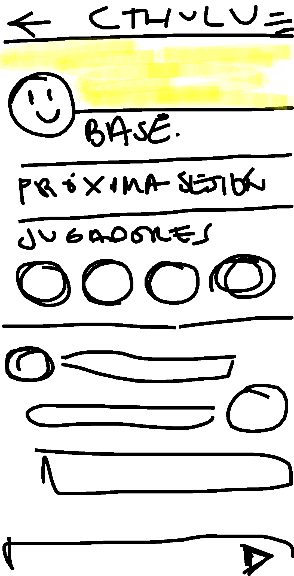 CTHULU
BASE.
PRÓXIMA SESIÓN
JUGADORES